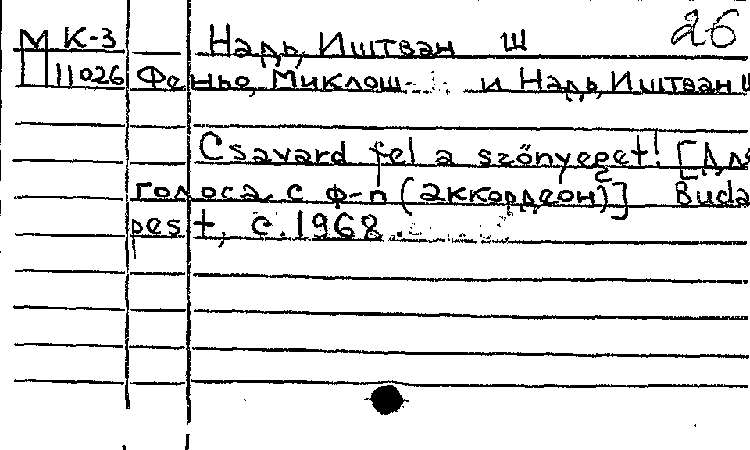 26
М К-3 Надь, Иштван Ш
П 11026 Феньо, Миклош и Надь, Иштван Ш
Csavard fel a szőnyeget! [Для
голоса с ф-п (аккордеон)] Buda
pest, c. 1968.